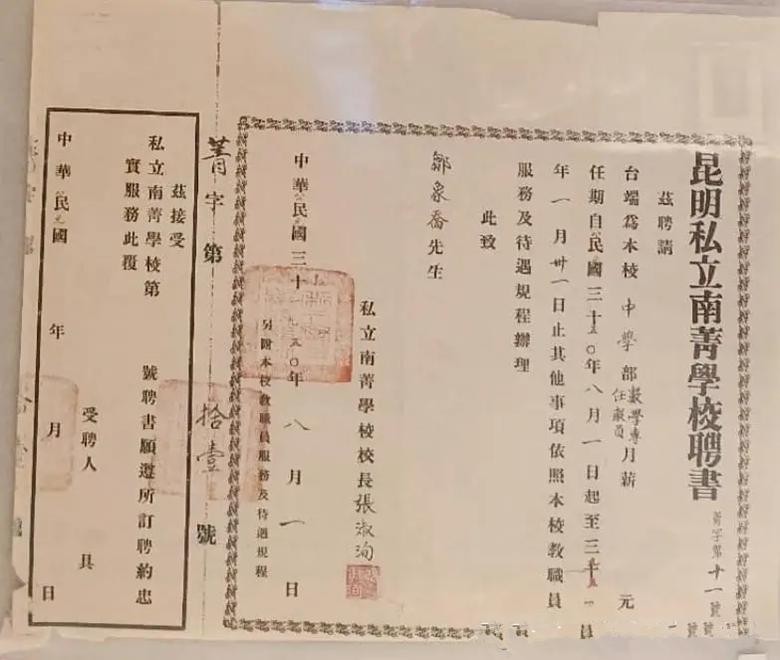 昆明私立南菁學校聘書
菁字第十一號
茲聘請
台端爲本校中學部數學專任教員月薪 元
任期自公民國三十五〇年八月一日起至三十五一
年一月卅一日止其他事項依照本校教職員
服務及待遇規程辦理
此致
鄒象喬先生
私立南菁學校校長張淑
另附本校教職員服務及待遇規程
中華公民元國三十一九五〇年八月一日
菁字第拾壹號
茲接受
私立南菁學校第 號聘書願遵所訂聘約忠
實服務此覆
受聘人 具
中華公民元國 年 月 日